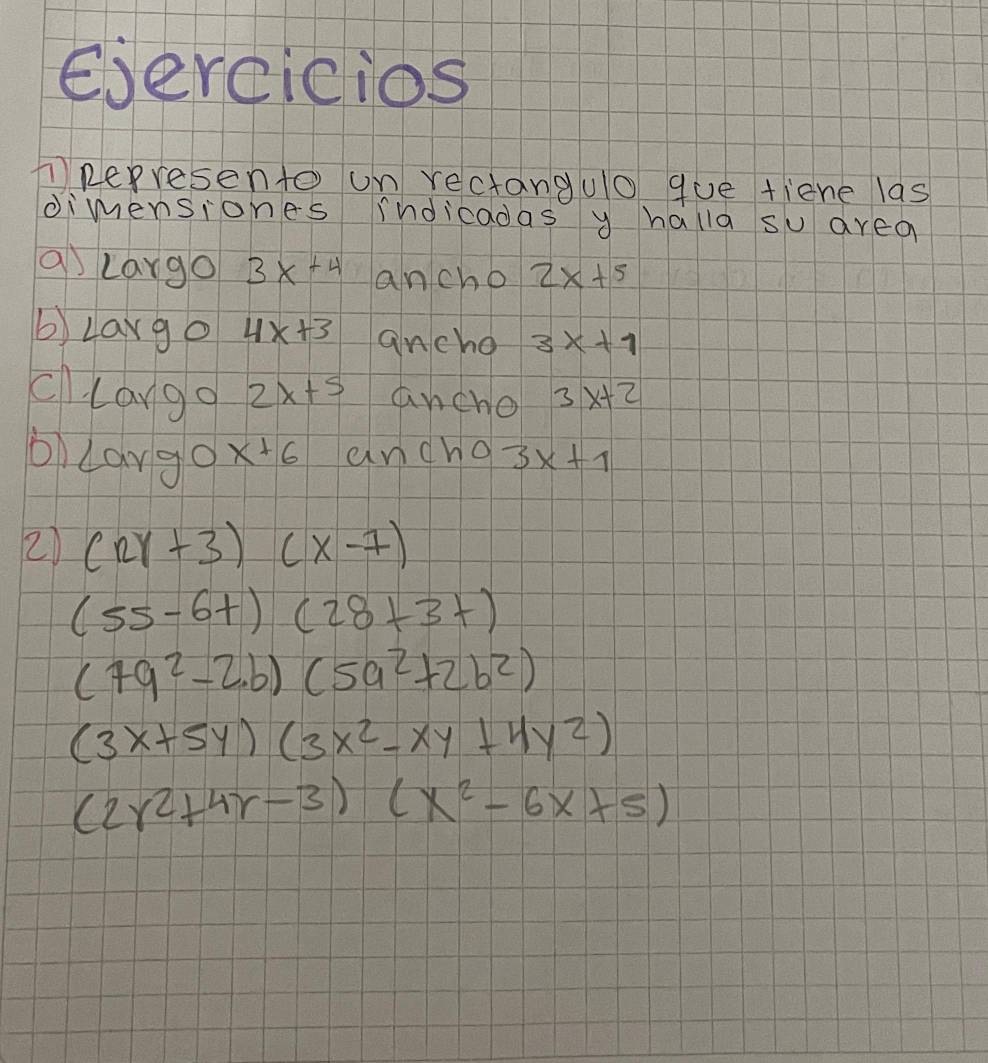 Ejercicios
1) Represento un rectangulo que tiene las
dimensiones indicadas y halla su area
a) Largo 3x+4 ancho 2x+5
b) Largo 4x+3 ancho 3x+1
c) Largo 2x+5 ancho 3x+2
D) Largo x+6 ancho 3x+1
2) (2x+3) (x-7)
(5s-6t) (28+3t)
(7a²-2b) (5a²+2b²)
(3x+5y) (3x²-xy+4y²)
(2r2+4r-3) (x²-6x+5)